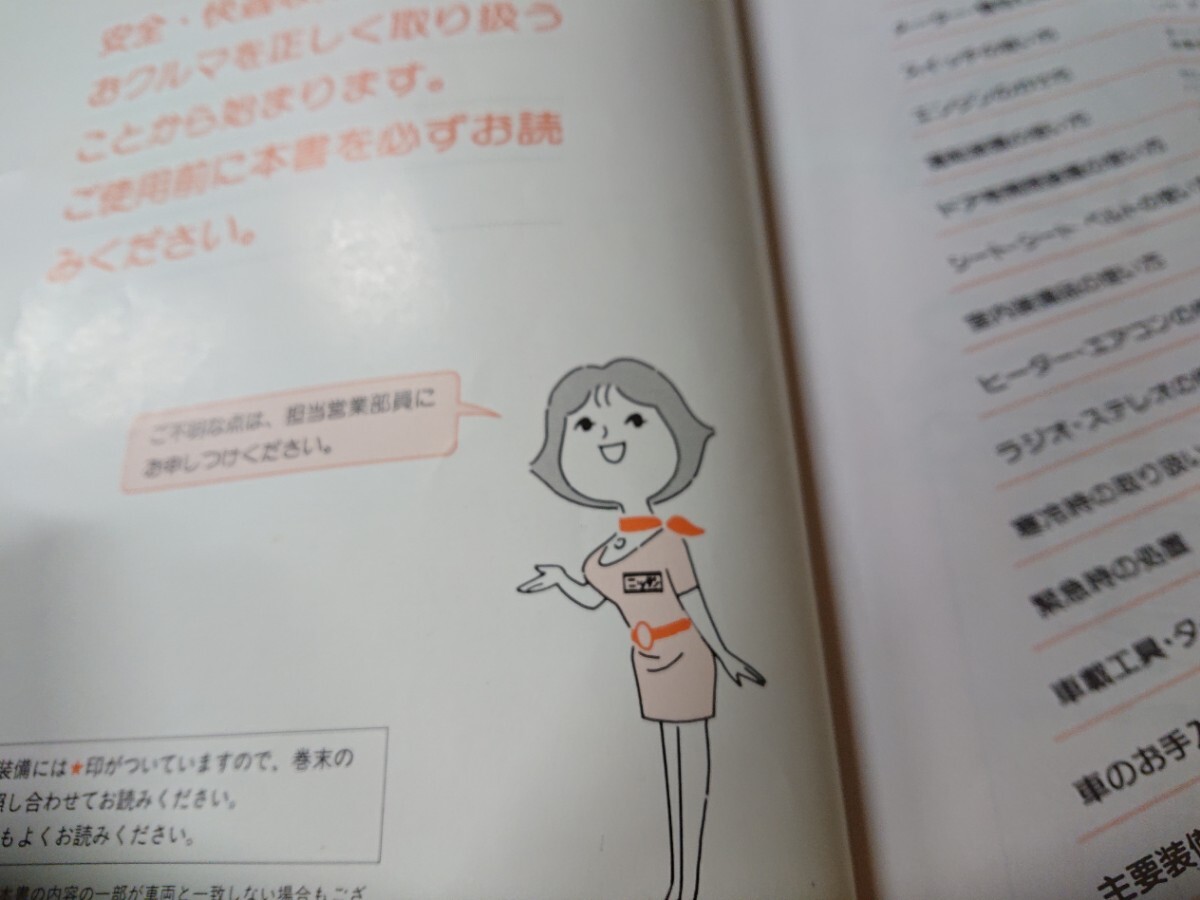 安全・快適
おクルマを正しく取り扱う
ことから始まります。
ご使用前に本書を必ずお読
みください。
ご不明な点は、担当営業部員に
お申しつけください。
ニッサン
装備には★印がついていますので、巻末の
照し合わせてお読みください。
もよくお読みください。
本書の内容の一部が車両と一致しない場合もござ
スイッチの使い方
エンジンのかけ方
運転装置の使い方
ドア等開閉装備の使い方
シート・シート ベルトの使い
室内装備品の使い方
ヒーター・エアコンの
ラジオ・ステレオの
寒冷時の取り扱い
緊急時の処置
車載工具・タ
車のお手入
主要装備